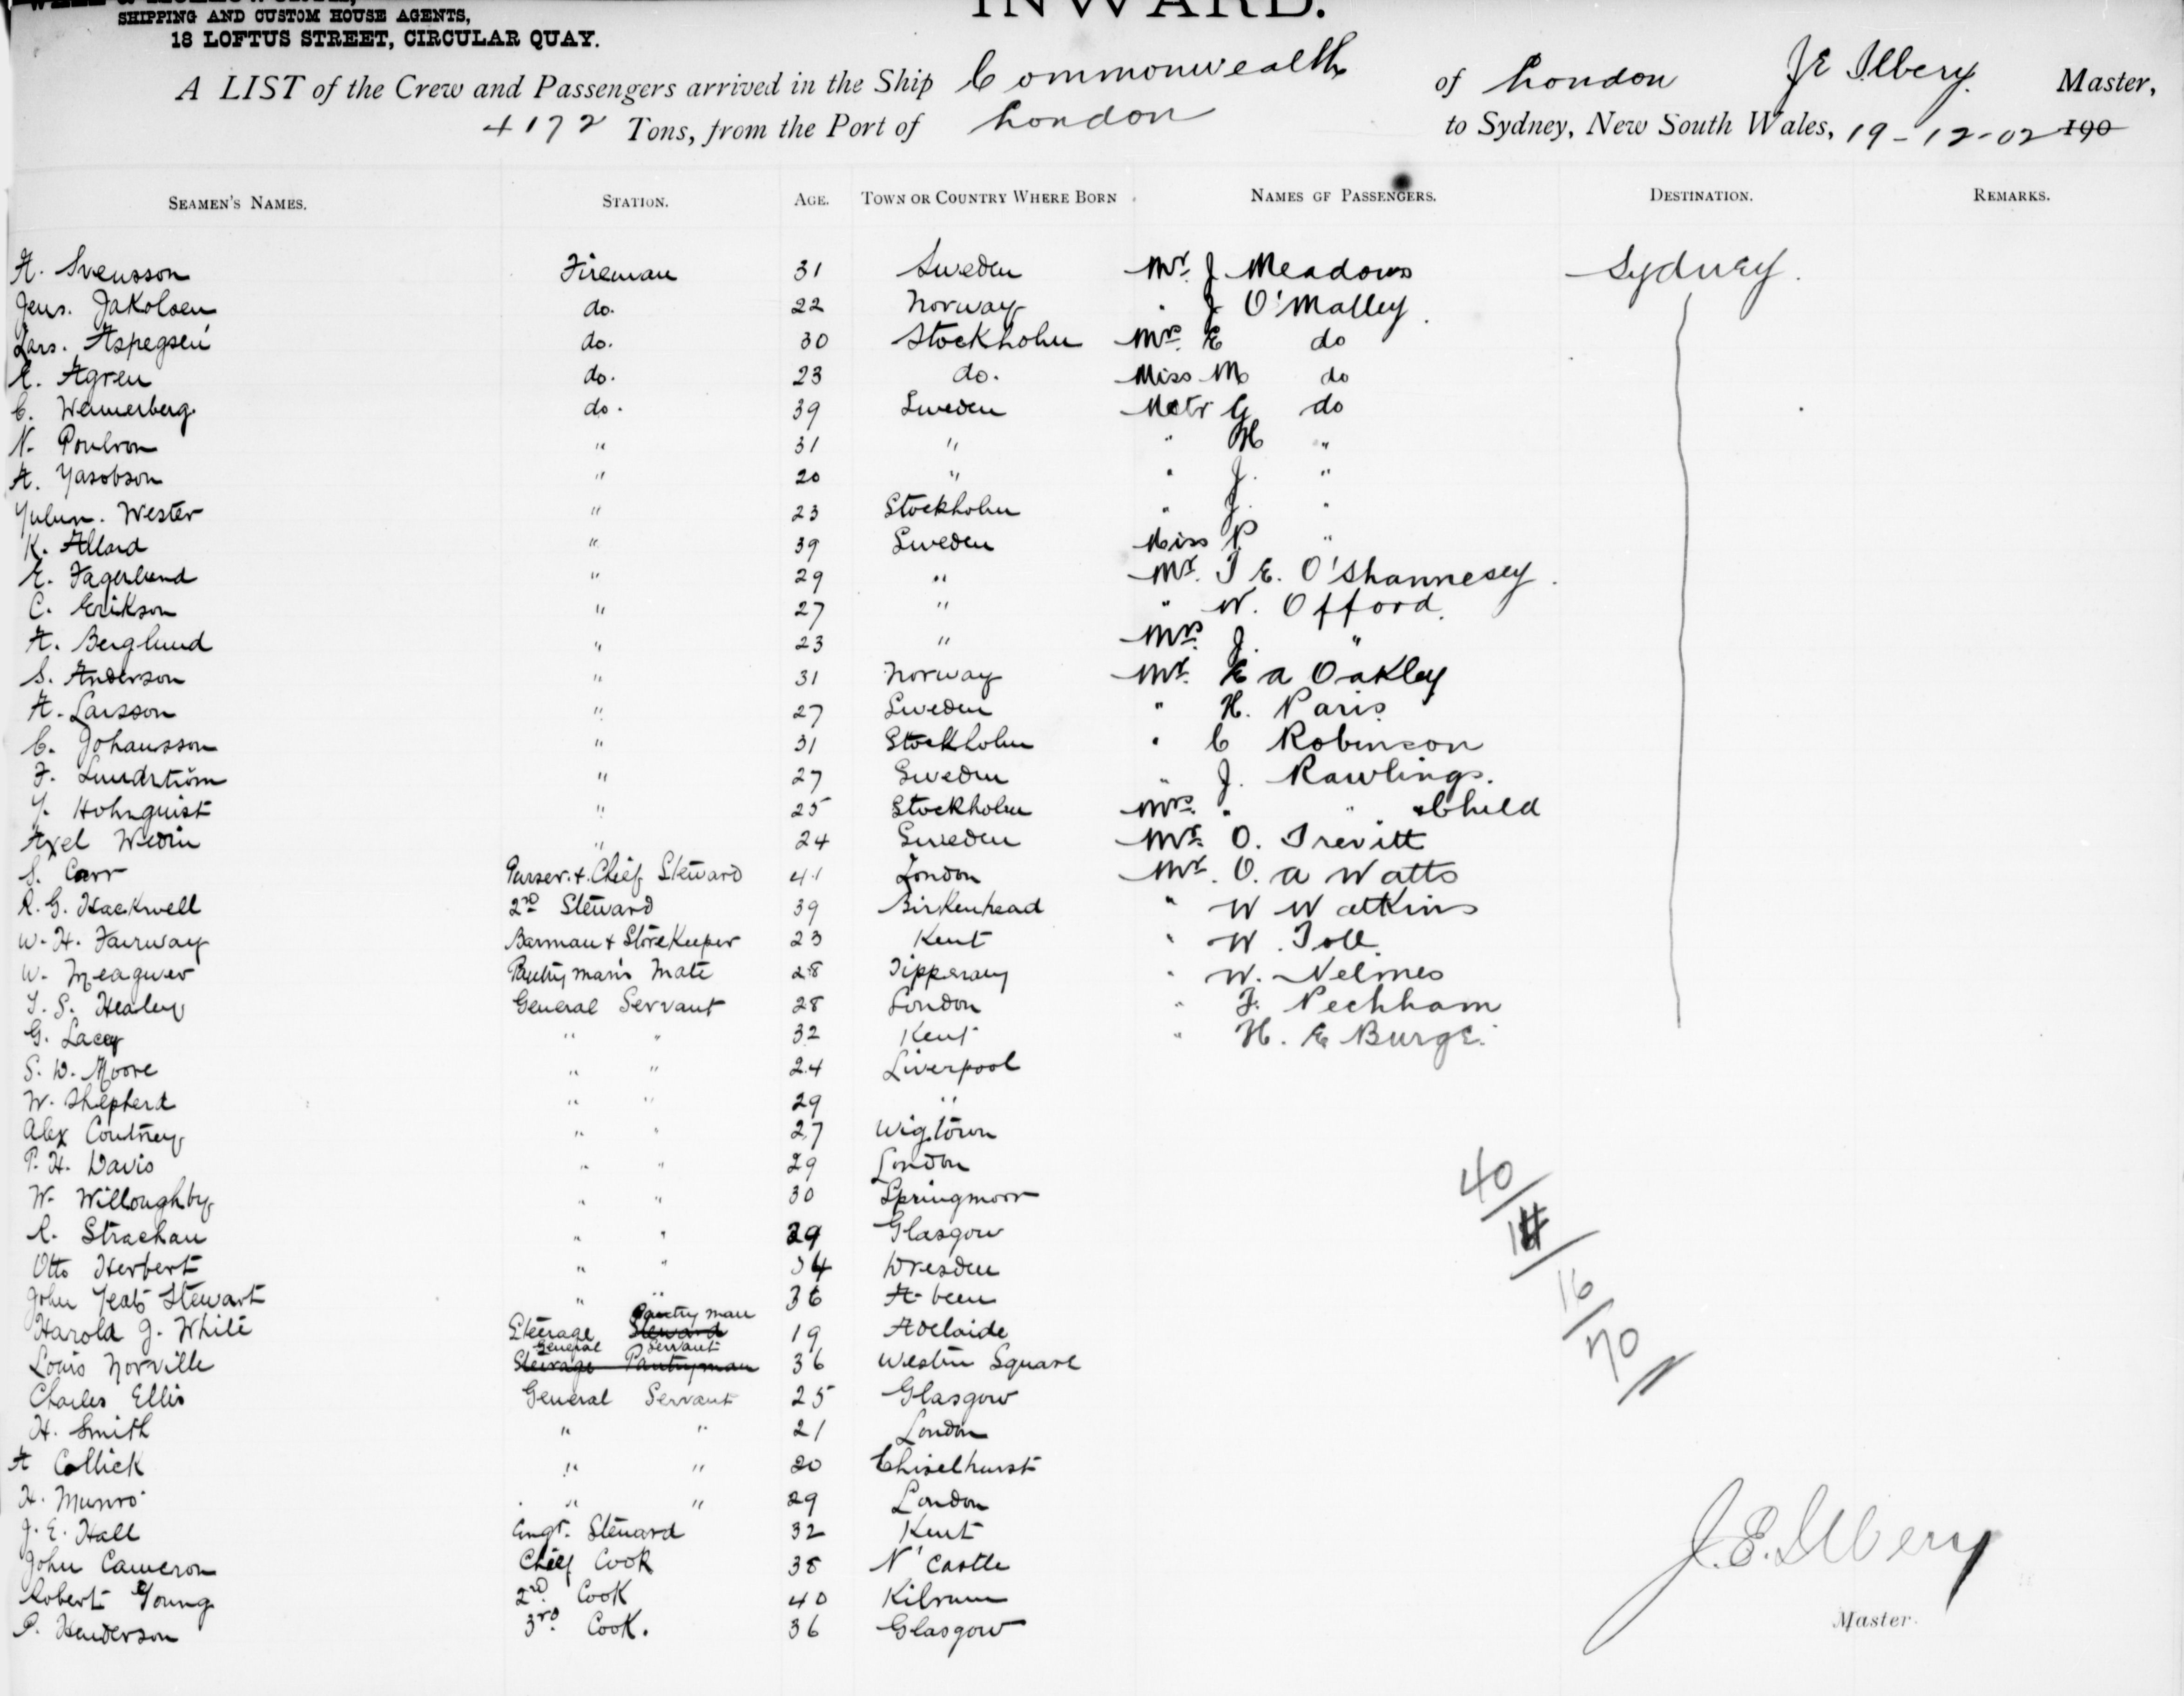 SHIPPING AND CUSTOM HOUSE AGENTS,
18 LOFTUS STREET, CIRCULAR QUAY.
INWARD.
A LIST of the Crew and Passengers arrived in the Ship Commonwealth of London J E Ilbery. Master,
4172 Tons, from the Port of London to Sydney, New South Wales, 19-12-02 190
SEAMEN'S NAMES. STATION. AGE. TOWN OR COUNTRY WHERE BORN NAMES OF PASSENGERS. DESTINATION. REMARKS.
A. Svensson Fireman 31 Sweden Mr. J Meadows Sydney.
Jens. Jakolsen do. 22 Norway " J O'Malley.
Lars. Aspegsen do. 30 Stockholm Mrs. E do
E. Agren do. 23 do. Miss M do
C. Wennerberg. do. 39 Sweden Mstr G do
N. Poulson " 31 " " H "
A. Yasobson " 20 " " J. "
Wester " 23 Stockholm " J. "
K. Allard " 39 Sweden Miss P. "
E. Fagerlund " 29 " Mr. T E. O'Shannesey.
C. Erikson " 27 " " W. Offord.
A. Berglund " 23 " Mrs. J. "
S. Anderson " 31 Norway Mr. E A Oakley
A. Larsson " 27 Sweden " H. Paris
C. Johansson " 31 Stockholm " C Robinson
F. Lundström " 27 Sweden " J. Rawlings.
Y. Holmquist " 25 Stockholm Mrs. " " & Child
Axel Wedin " 24 Sweden Mr. O. Trevitt
S. Carr Purser. + Chief Steward 41 London Mr. O. A Watts
R. G. Hackwell 2nd Steward 39 Birkenhead " W Watkins
W. H. Fairway Barman + StoreKeeper 23 Kent " W. Toll.
W. Meagwer Pantryman's Mate 28 Tipperary " W. Nelmes
T. S. Healey General Servant 28 London " F. Peckham
G. Lacey " " 32 Kent " H. E Burge.
S. W. Moore " " 24 Liverpool
W. Shepherd " " 29 "
Alex Coutney " " 27 Wigtown
P. H. Davis " " 29 London
W. Willoughby " " 30 Springmoor
R. Strachan " " 29 Glasgow
Otto Herbert " " 34 Dresden
John Yeats Stewart " " 36 A-been
Pantryman
Harold J. White Steerage Steward 19 Adelaide
General Servant
Louis Norville Steerage Pantryman 36 Westin Square
Charles Ellis General Servant 25 Glasgow
H. Smith " " 21 London
A Collick " " 20 Chiselhurst
H. Munro " " 29 London
J. E. Hall Engr. Steward 32 Kent
John Cameron Chief Cook 38 N'Castle
Robert Young 2nd. Cook 40
P. Henderson 3rd. Cook. 36 Glasgow
40
16
70
J.E. Ilbery
Master.